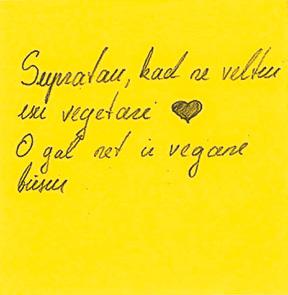 Supratau, kad ne veltui
esu vegetarė ♥
O gal net ir veganė
būsiu